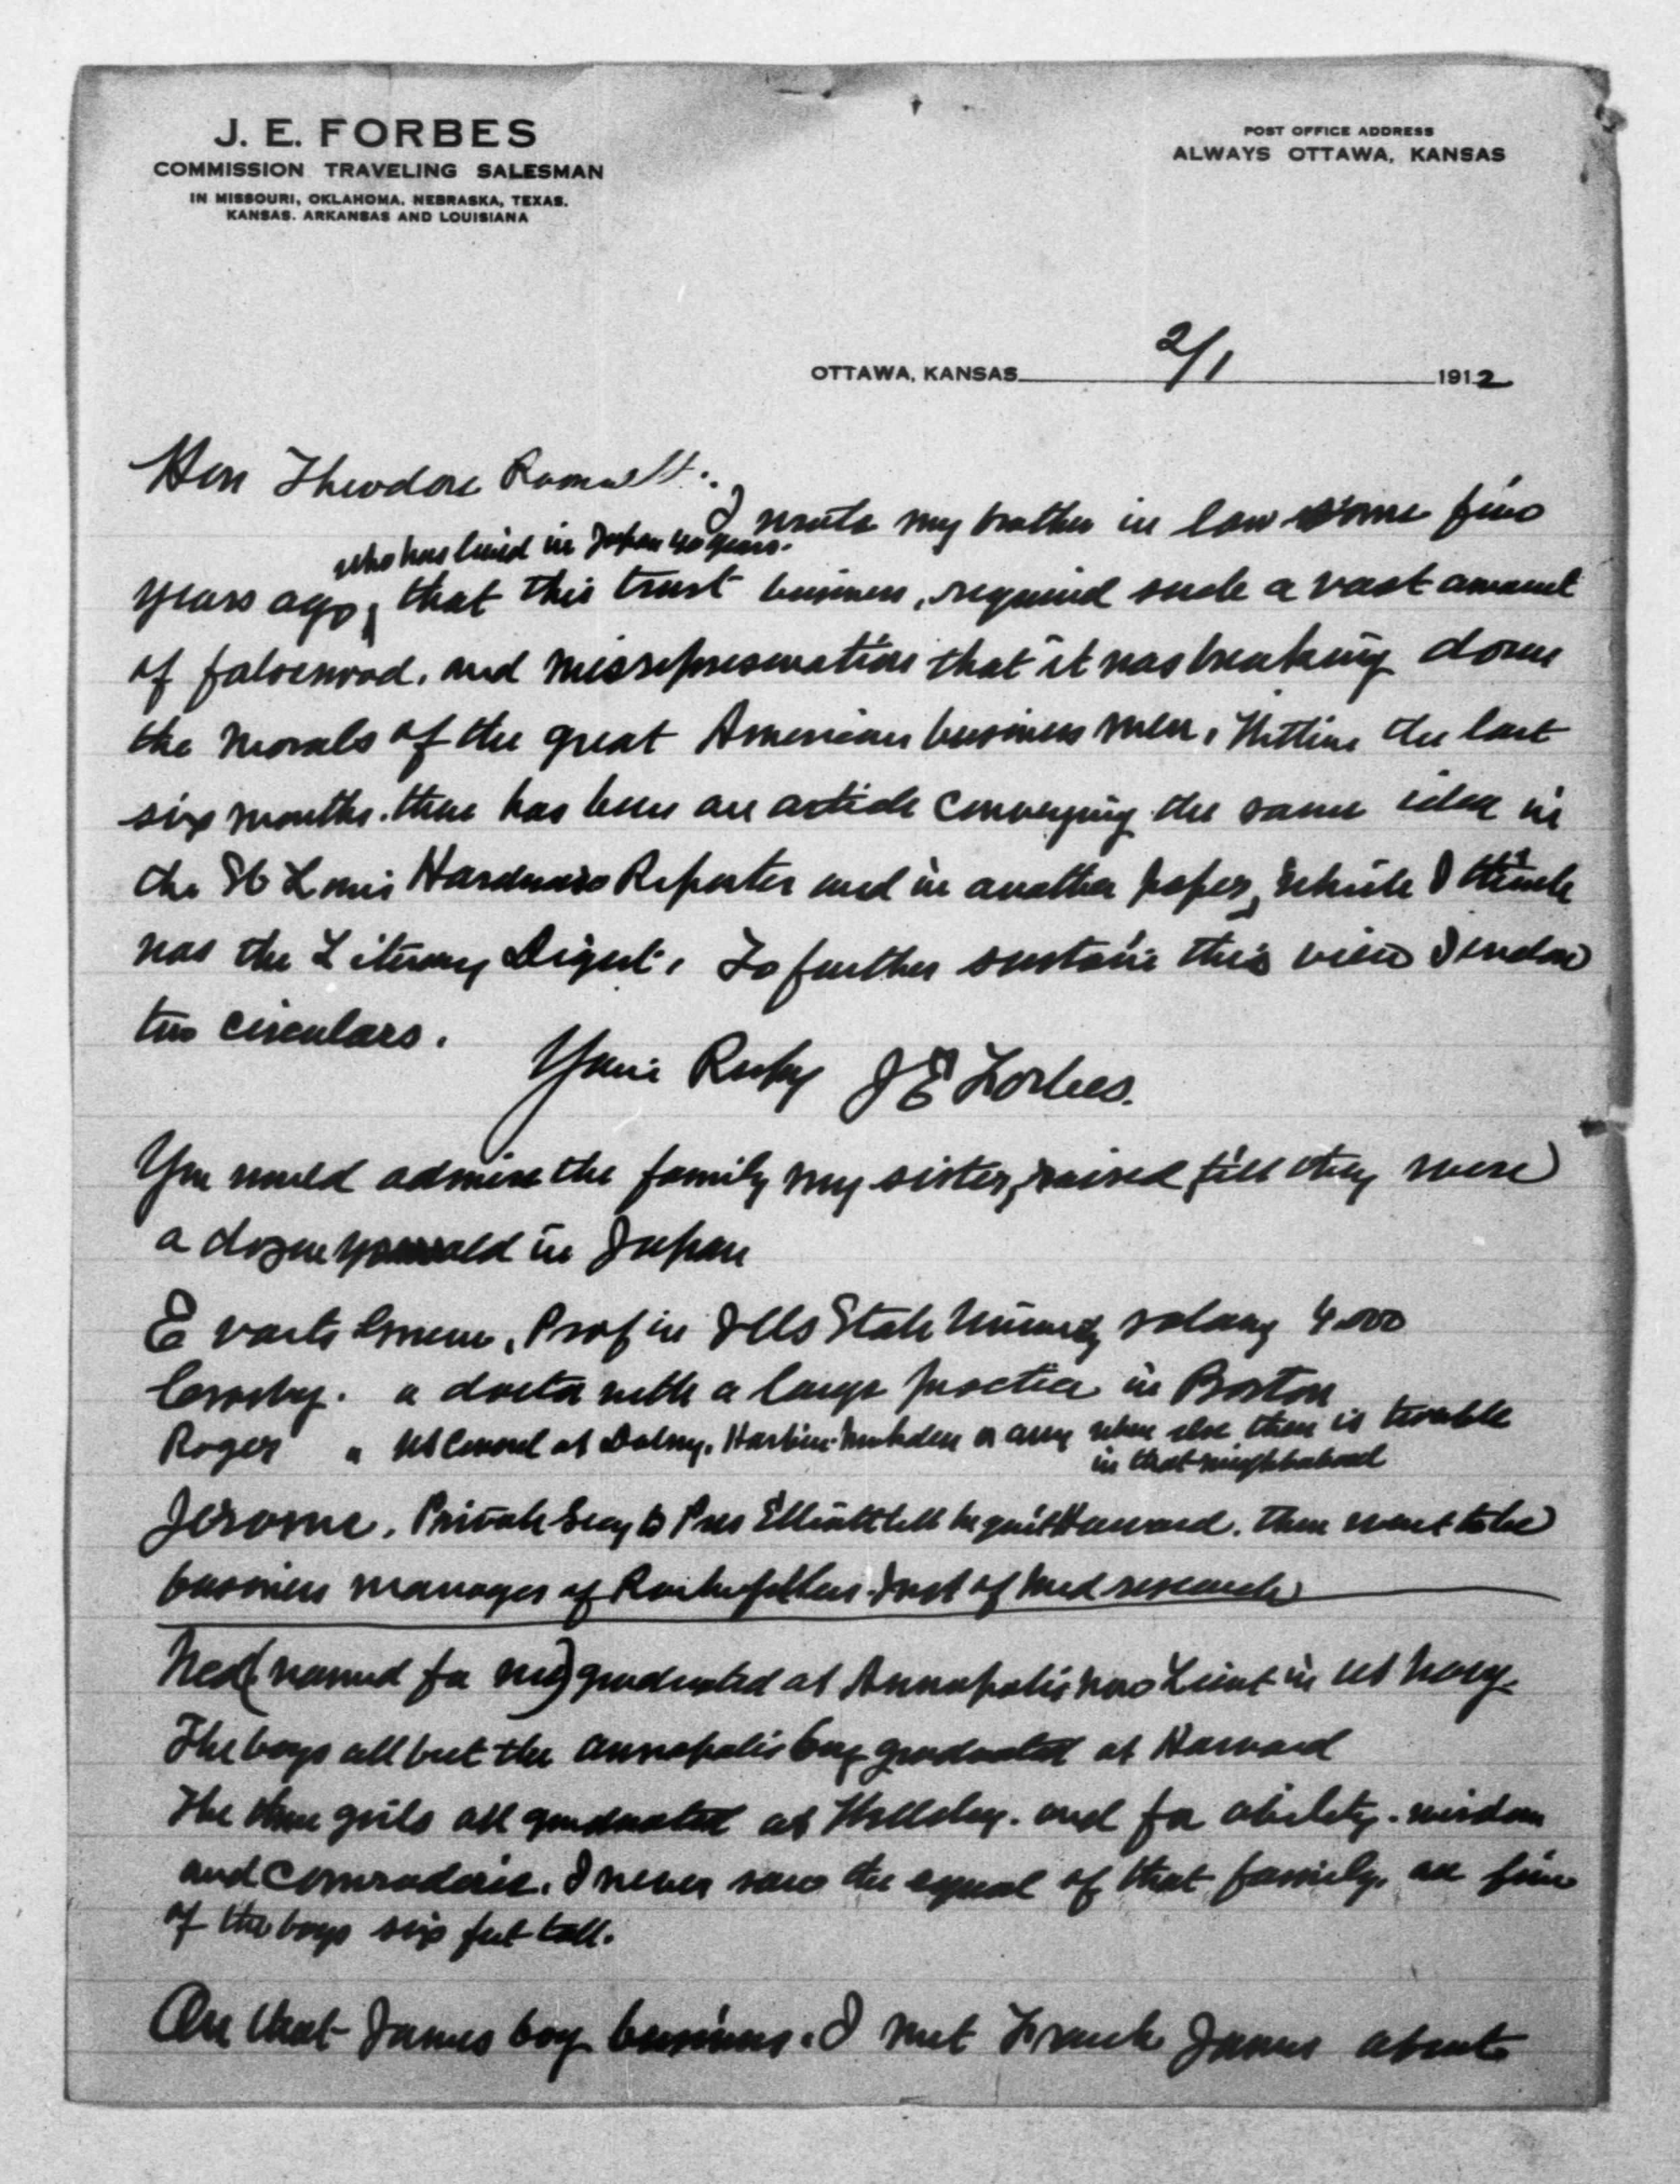 J. E. FORBES
COMMISSION TRAVELING SALESMAN
IN MISSOURI, OKLAHOMA, NEBRASKA, TEXAS,
KANSAS, ARKANSAS AND LOUISIANA
POST OFFICE ADDRESS
ALWAYS OTTAWA, KANSAS
OTTAWA, KANSAS 2/1 1912
Hon Theodore Roosevelt.
I wrote my brother in law some five
who has lived in Japan 40 years.
years ago, that this trust business, required such a vast amount
of falsehood, and misrepresentation that it was breaking down
the morals of the great American business men. Within the last
six months. there has been an article conveying the same idea in
the St Louis Hardware Reporter and in another paper, which I think
was the Literary Digest. To further sustain this view I enclose
two circulars.
Yours Respy J E Forbes.
You would admire the family my sister, raised till they were
a dozen years old in Japan
Evarts Greene, Prof in Ills State University salary 4.000
Crosby. a doctor with a large practice in Boston
Roger " US Consul at Dalny. Harbin. Mukden or any where else there is trouble
in that neighborhood
Jerome. Private Secy to Pres Elliott till he quit Harvard. then went to be
business manager of Rockefellers Inst of Med research
Ned (named for me) graduated at Annapolis now Lieut in US Navy.
The boys all but the Annapolis boy graduated at Harvard
The three girls all graduated at Wellsley. and for ability. wisdom
and comraderie. I never saw the equal of that family. all five
of the boys six feet tall.
On that James boy business. I met Frank James about